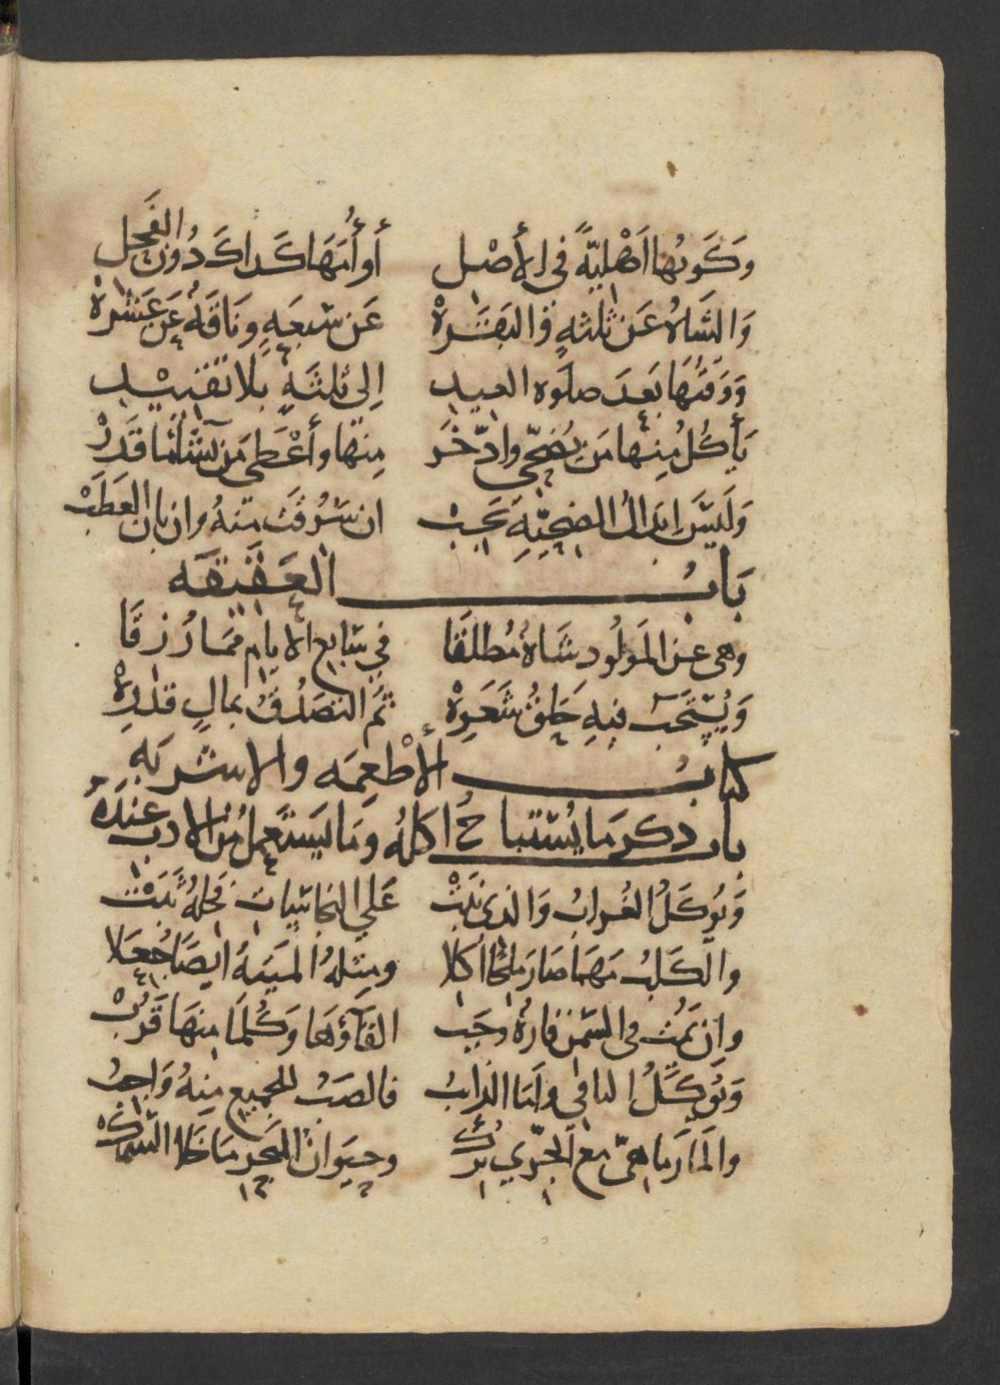 وَكَونُها اَهْلِيّةً في الأصْلِ أو أُمّهَا كَذاكَ دُونَ الفَحِل
وَالشَاهُ عَن ثلثهٍ والبَقَرهْ عَن سَبعَهٍ وَنَاقَهٌ عَن عَشَرهْ
وَوَقتُهَا بَعدَ صلَوه العيدِ إلى ثلثَهٍ بلا تَقْييْدِ
يَأكُلُ مِنها مَن يُضَحّي وادّخَر مِنهَا وأعْطى مَن يَشَا مَا قَدَرْ
وَلَيسَ اِبدَالُ الضحِيّهِ يَجِبْ ان سُرقَت مِنهُ وان بان العَطَبْ
بَابُ العَقيقَه
وهي عَن المَولُودِ شَاهٌ مُطلَقَا في سَابع الايام مَمَا رُزقَا
وَيُستَحَبّ فيهِ حَلقُ شَعَرِهْ ثمَ التصَدُقُ بمالٍ قدرِهْ
كتابُ الأطْعِمَه والاشربَهِ
باب ذكر مَا يُسْتباحُ اكلهُ وَمَا يَستَعمِلُ مِن الادب عِندَهُ
وَيُوكَلُ الغُرابُ وَالذى نَبَتْ عَلي النجاسَيات نخلهٌ نَبَتْ
والكَلبُ مَهمَا صَارَ ملحًا اُكلا ومِثلهُ المَيتهُ ايضًا جُعَلا
وان تمُت في السَمْن فارةٌ وجَب القآؤهَا وَكُلمَا مِنهَا قَرُبْ
وَيُوكَلُ الباقي وامَا الذابُ فالصَبُ للجميعِ مِنهُ وَاجِبُ
والمَارمَاهىّ مَع الجرّي تُركْ وحيَوانُ البَحر مَا خلا السَمَكْ